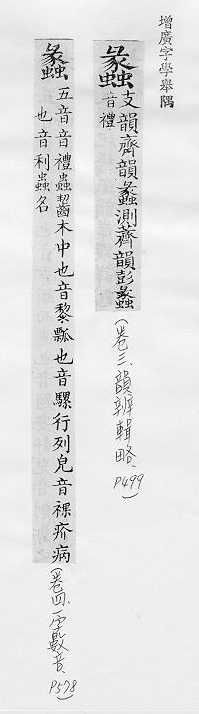 增廣字學舉隅
蠡 支韻齊韻蠡測薺韻彭蠡
音禮
(卷三、韻辨輯略、P499)
蠡 五音音禮蟲齧木中也音黎瓢也音騾行列皃音裸疥病
也音利蟲名
(卷四、一字數音、P578)